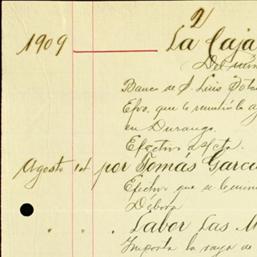 2
1909 La Caja
Del mi
Banco de S. Luis Poto
Efvo. que le remitió a
en Durango.
Efectivo
Agosto 1st por Tomás Garc
Efectivo que se le
Débora
" " Labor Las M
Importe la raya de